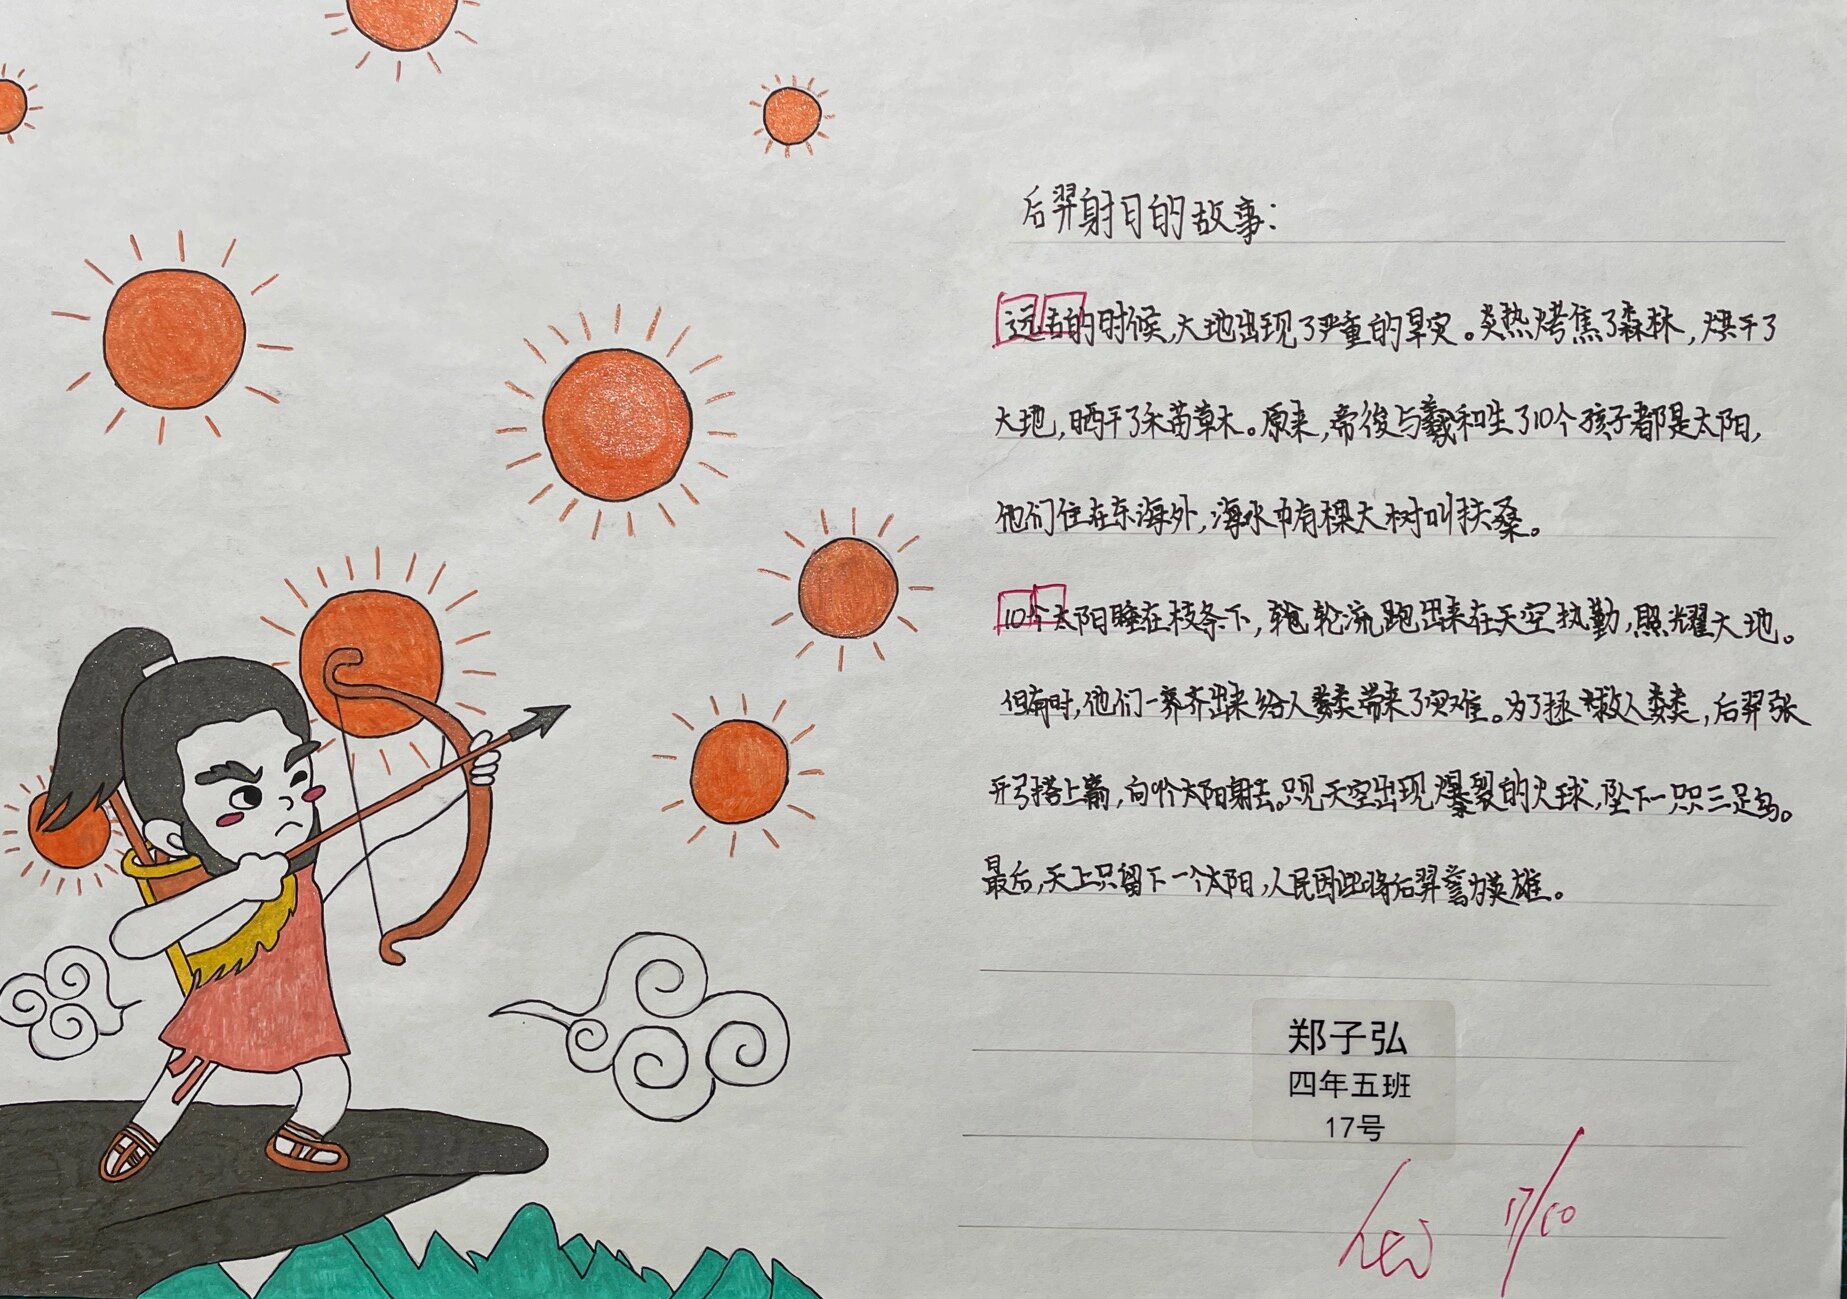 后羿射日的故事：
远古的时候，大地出现了严重的旱灾。炎热烤焦了森林，烘干了
大地，晒干了禾苗草木。原来，帝俊与羲和生了10个孩子都是太阳，
他们住在东海外，海水中有棵大树叫扶桑。
10个太阳睡在枝条下，轮流跑出来在天空执勤，照耀大地。
但有时，他们一齐出来给人类带来了灾难。为了拯救人类，后羿张
开弓搭上箭，向9个太阳射去。只见天空出现爆裂的火球，坠下一只只三足乌。
最后，天上只留下一个太阳，人民因此将后羿誉为英雄。
郑子弘
四年五班
17号
17/10